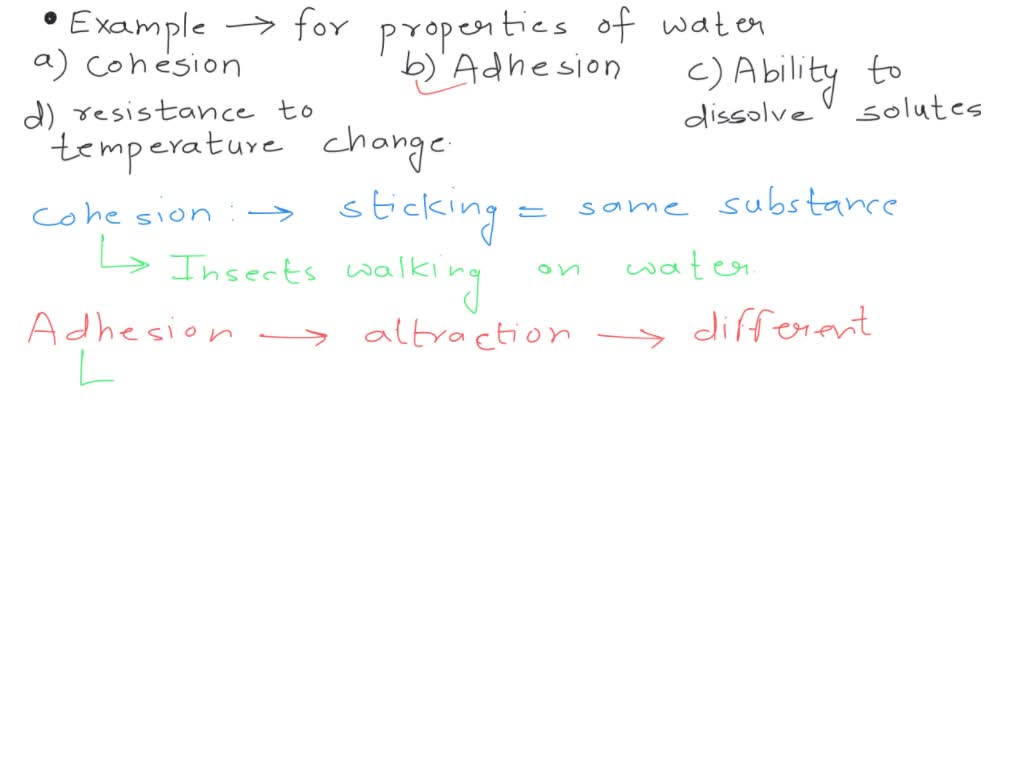 • Example → for properties of water
a) cohesion b) Adhesion c) Ability to dissolve solutes
d) resistance to temperature change.
cohesion : → sticking = same substance
↳ Insects walking on water.
Adhesion → attraction → different